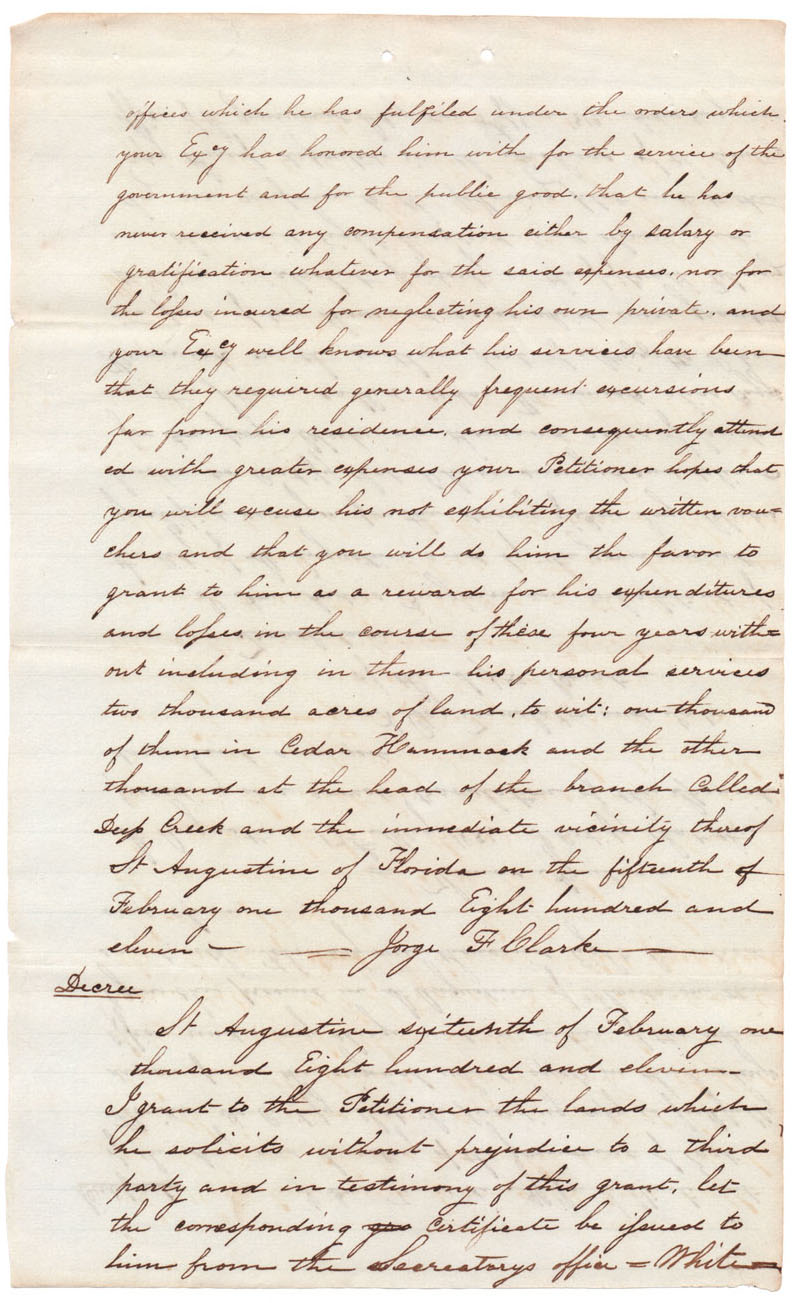 offices which he has fulfiled under the orders which
your Excy has honored him with for the service of the
government and for the public good. that he has
never received any compensation either by salary or
gratification whatever for the said expenses. nor for
the losses incured for neglecting his own private. and
your Excy well knows what his services have been
that they required generally frequent excursions
far from his residence. and consequently attend
ed with greater expenses your Petitioner hopes that
you will excuse his not exhibiting the written vou=
chers and that you will do him the favor to
grant to him as a reward for his expenditures
and losses in the course of these four years with=
out including in them his personal services
two thousand acres of land. to wit: one thousand
of them in Cedar Hammock and the other
thousand at the head of the branch Called
Deep Creek and the immediate vicinity thereof
St Augustine of Florida on the fifteenth of
February one thousand Eight hundred and
eleven — — Jorge F Clarke —
Decree
St Augustine sixteenth of February one
thousand Eight hundred and eleven -
I grant to the Petitioner the lands which
he solicits without prejudice to a third
party and in testimony of this grant, let
the corresponding certificate be issued to
him from the Secreatarys office = White =